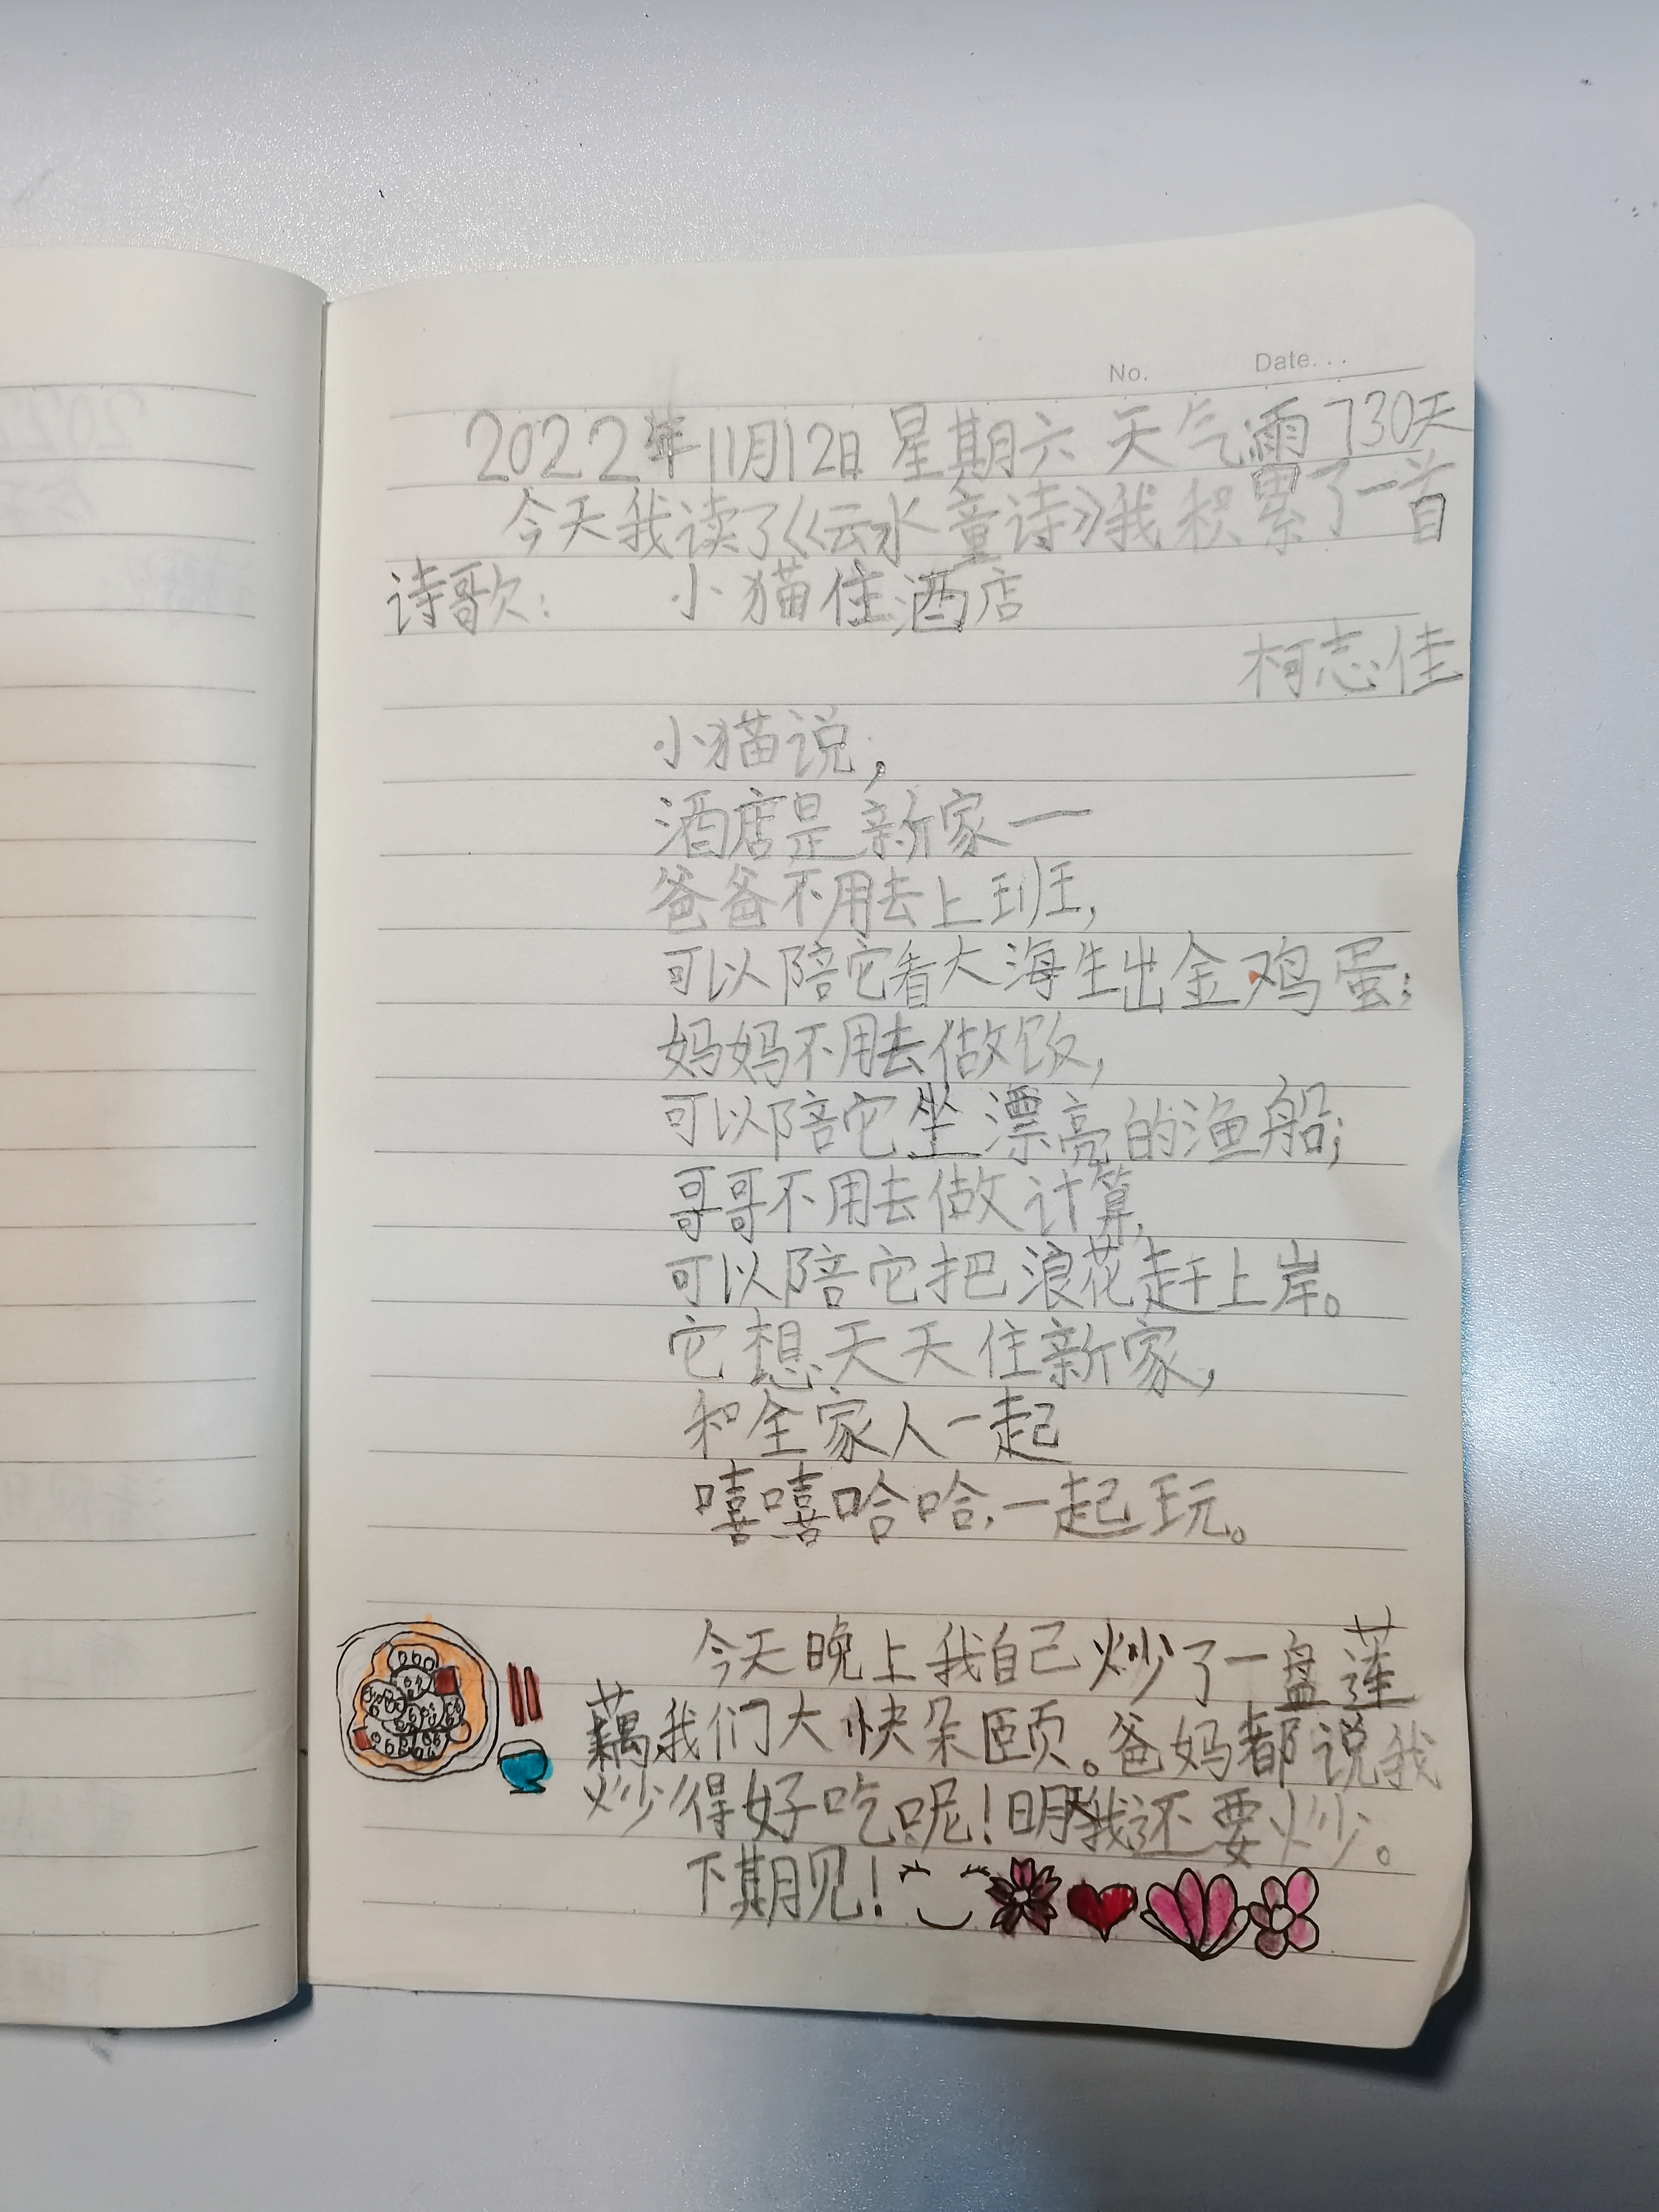 No. Date...
2022年11月12日 星期六 天气雨 730天
今天我读了《云水童诗》我积累了一首
诗歌： 小猫住酒店
柯志佳
小猫说，
酒店是新家一
爸爸不用去上班，
可以陪它看大海生出金鸡蛋；
妈妈不用去做饭，
可以陪它坐漂亮的渔船；
哥哥不用去做计算，
可以陪它把浪花赶上岸。
它想天天住新家，
和全家人一起
嘻嘻哈哈，一起玩。
今天晚上我自己炒了一盘莲
藕，我们大快朵颐。爸妈都说我
炒得好吃呢！明天我还要炒。
下期见！